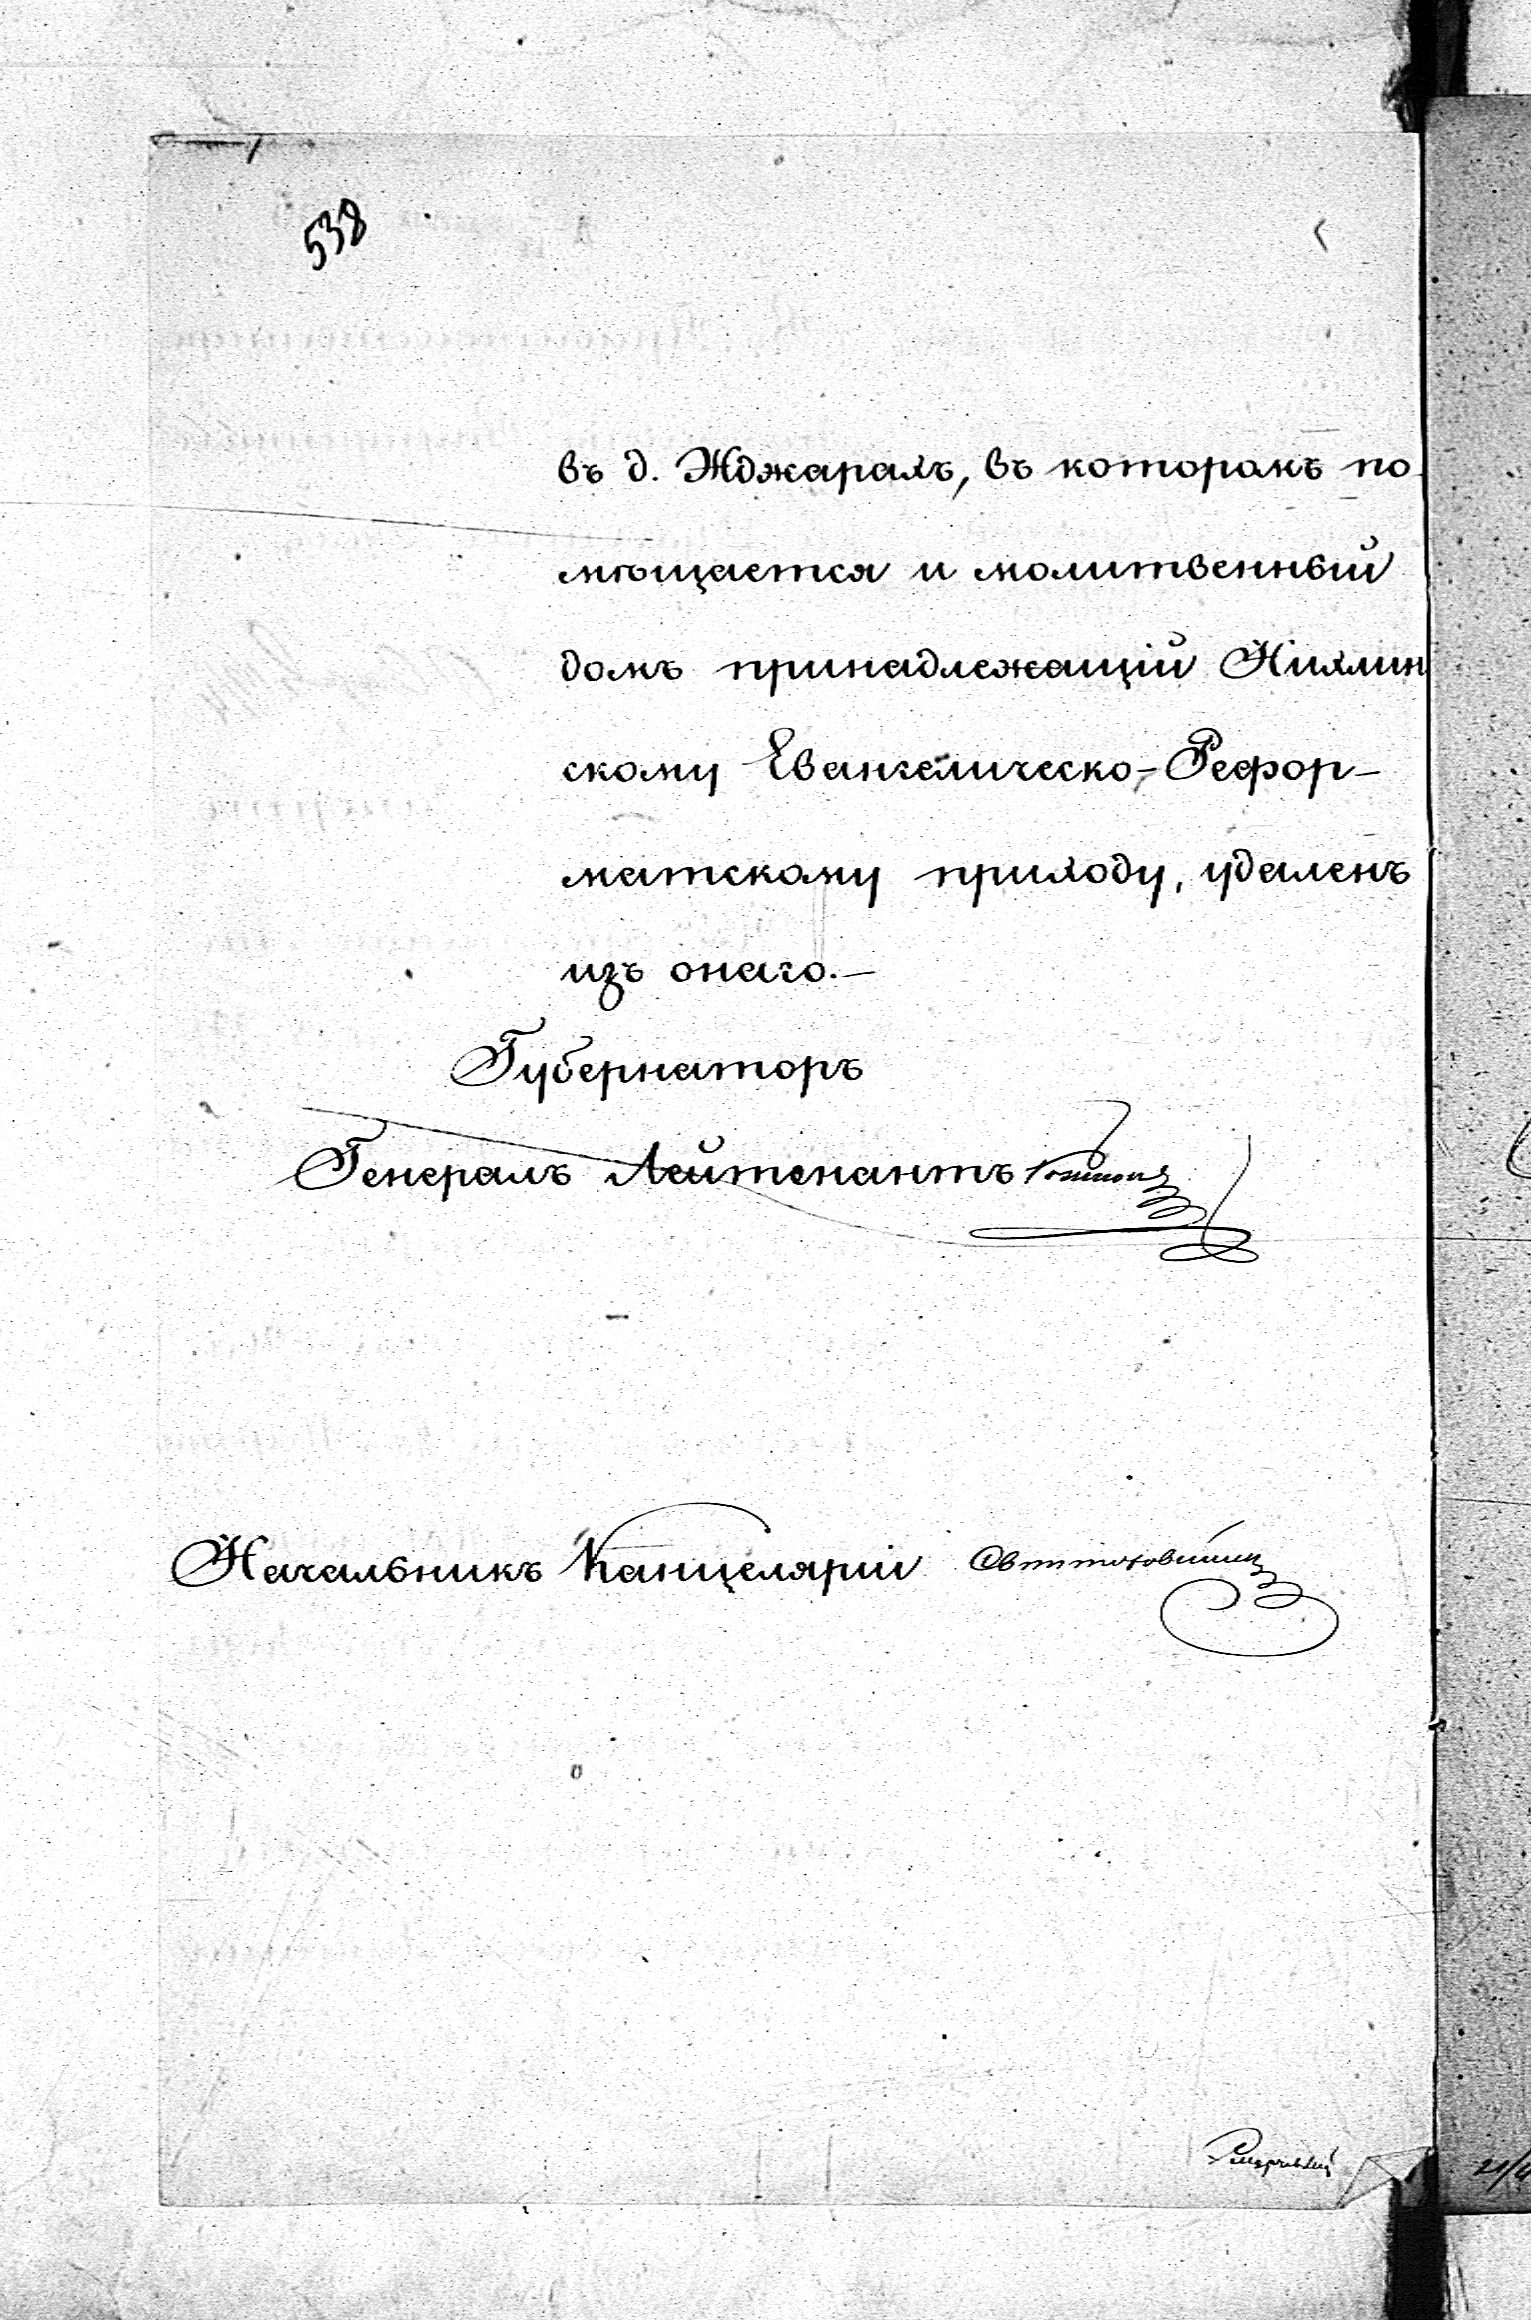 538
въ д. Жджарахъ, въ которомъ по-
мѣщается и молитвенный
домъ принадлежащій Жихлин
скому Евангелическо-Рефор-
матскому приходу, удаленъ
изъ онаго.—
Губернаторъ
Генералъ Лейтенантъ
Начальникъ Канцеляріи